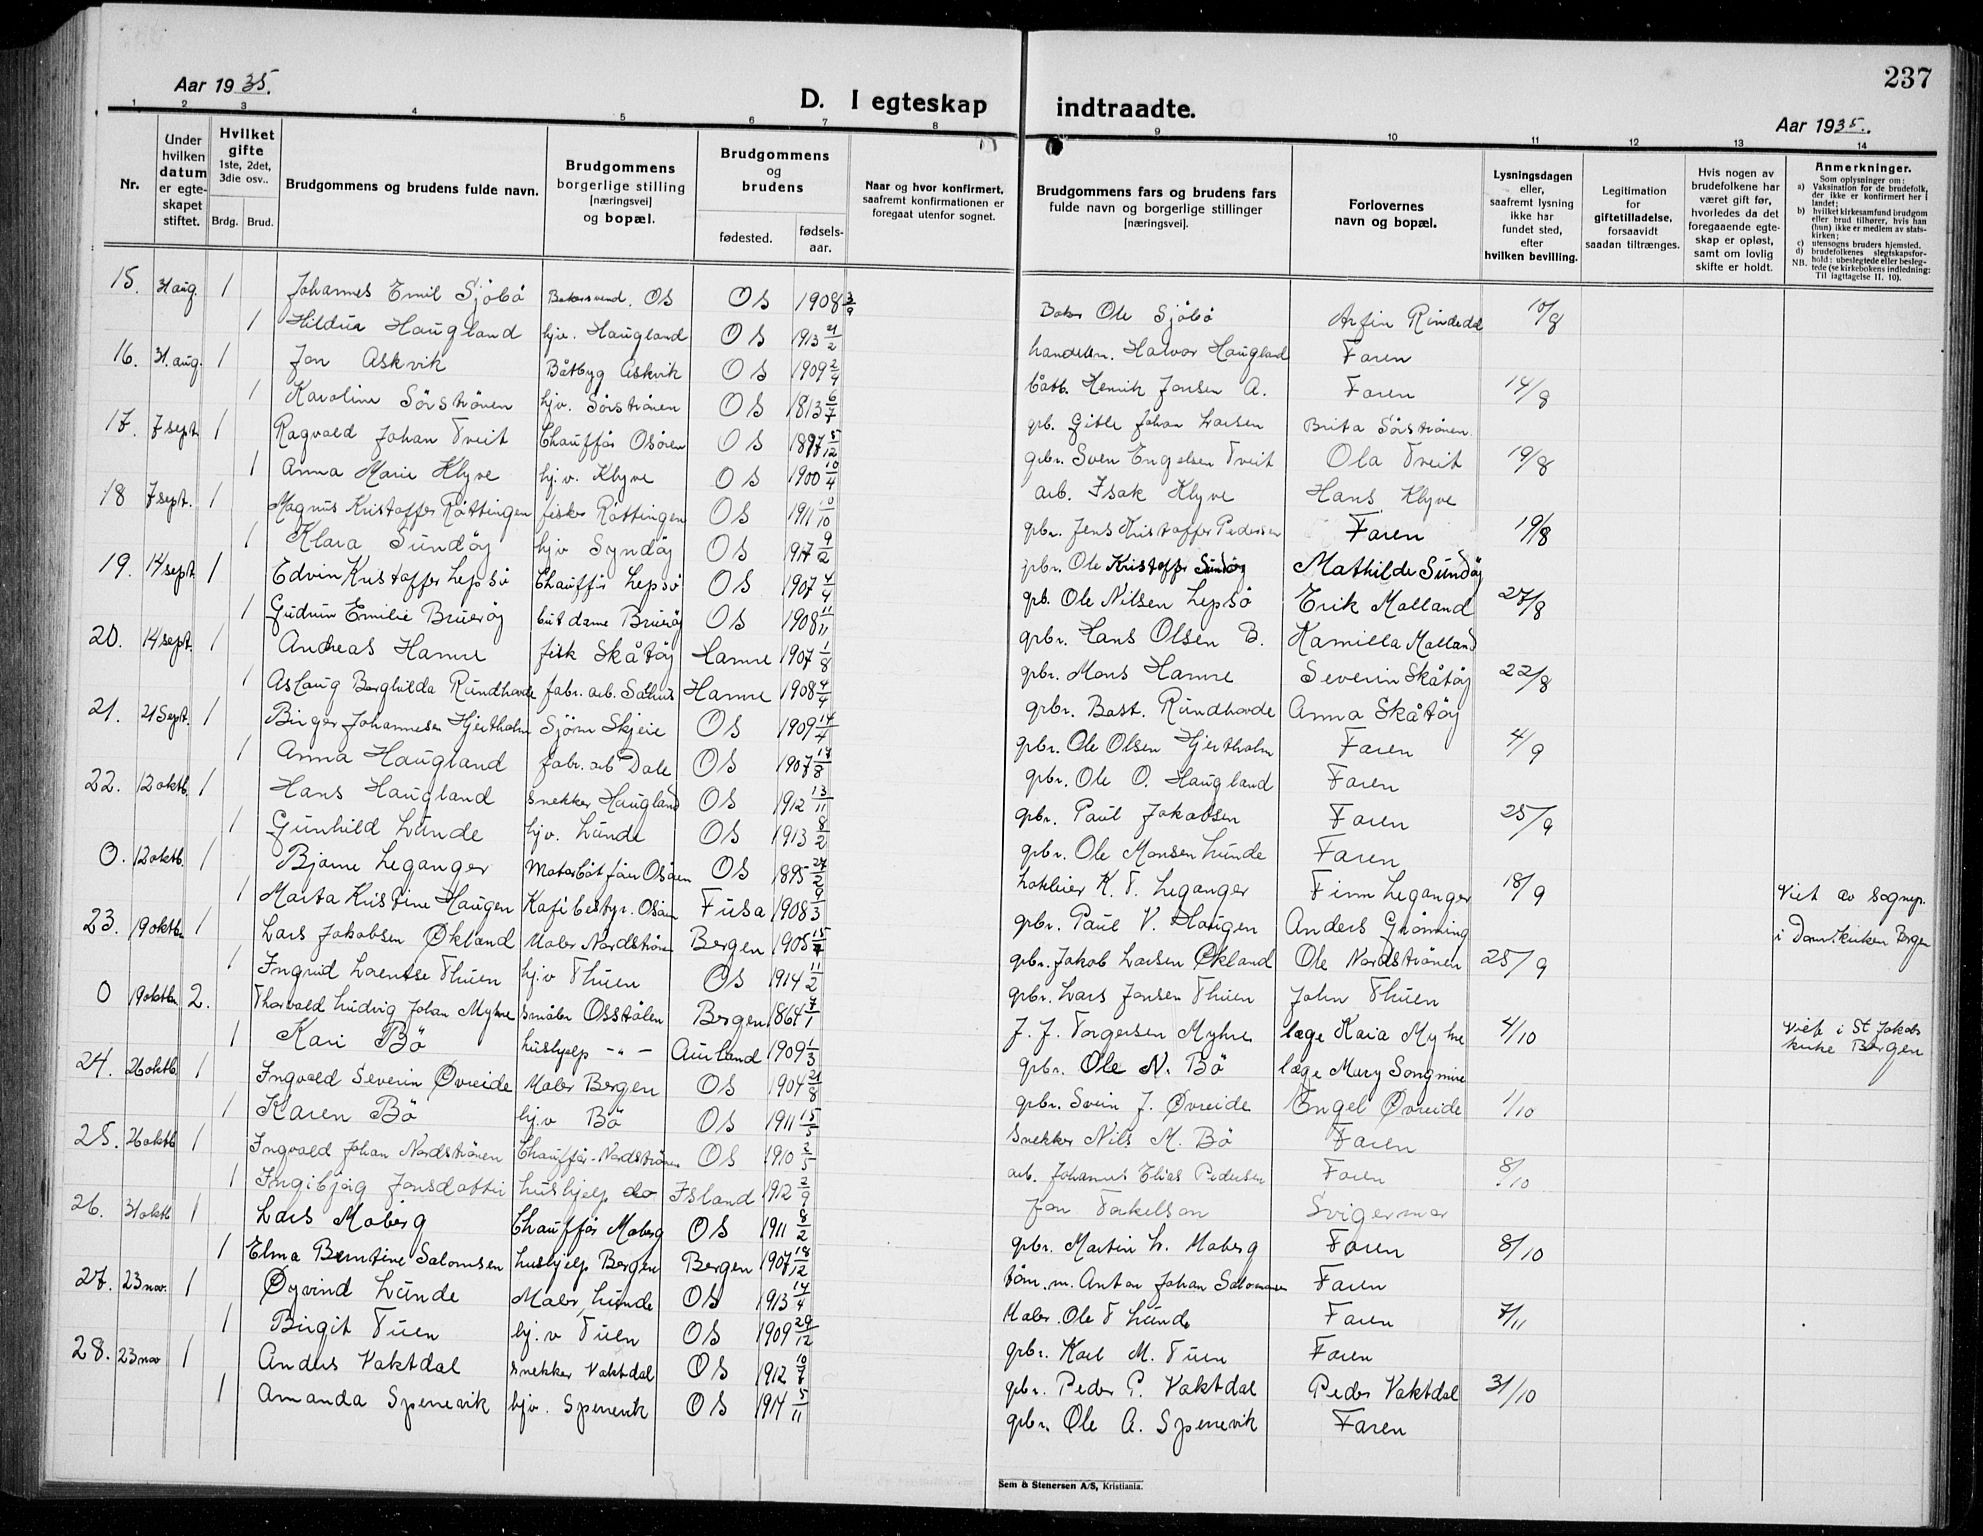 237
Aar 1935.
D. I egteskap indtraadte.
Aar 1935.
1 2 3 4 5 6 7 8 9 10 11 12 13 14
Nr.
Under hvilken datum er egteskapet stiftet.
Hvilket gifte 1ste, 2det, 3die osv..
Brdg. Brud.
Brudgommens og brudens fulde navn.
Brudgommens borgerlige stilling [næringsvei] og bopæl.
Brudgommens og brudens
fødested. fødsels-aar.
Naar og hvor konfirmert, saafremt konfirmationen er foregaat utenfor sognet.
Brudgommens fars og brudens fars fulde navn og borgerlige stillinger [næringsvei].
Forlovernes navn og bopæl.
Lysningsdagen eller, saafremt lysning ikke har fundet sted, efter hvilken bevilling.
Legitimation for giftetilladelse, forsaavidt saadan tiltrænges.
Hvis nogen av brudefolkene har været gift før, hvorledes da det foregaaende egteskap er opløst, samt om lovlig skifte er holdt.
Anmerkninger.
Som oplysninger om:
a) Vaksination for de brudefolk, der ikke er konfirmert her i landet;
b) hvilket kirkesamfund brudgom eller brud tilhører, hvis han (hun) ikke er medlem av statskirken;
c) utensogns bruders hjemsted.
d) brudefolkenes slegtskapsforhold: ubeslegtede eller beslegtede (se kirkebokens indledning: Til Iagttagelse II. 10).
NB.
15. 31 aug. 1 Johannes Emil Sjöbö Bakersvend. Os Os 1908 3/9 Baker Ole Sjöbö Arfin Rindedal 10/8
1 Hildur Haugland hjv. Haugland Os 1913 21/2 handelsm. Halvor Haugland Faren
16. 31. aug. 1 Jon Askvik Båtbyg Askvik Os 1909 2/4 båtb. Henrik Jonsen A. Faren 14/8
1 Karoline Sörströnen hjv. Sörströnen Os 1813 6/7 grb. Gitle Johan Larsen Brita Sörströnen
17. 7 sept. 1 Ragvald Johan Tveit Chaufför Osören Os 1897 5/12 gbr. Sven Engelsen Tveit Ola Tveit 19/8
1 Anna Marie Klyve hj.v. Klyve Os 1900 10/4 arb. Isak Klyve Hans Klyve
18 7 sept. 1 Magnus Kristoffer Röttingen fisker Röttingen Os 1911 /10 gbr. Jens Kristoffer Pedersen Faren 19/8
1 Klara Sundöy hjv Syndöy Os 1917 9/2 gbr. Ole Kristoffer Sundöy Mathilde Sundöy
19. 14 sept. 1 Edvin Kristoffer Lepsö Chaufför Lepsö Os 1907 4/4 gb. Ole Nilsen Lepsö Erik Malland 27/8
1 Gudrun Emilie Bruaröy but dame Bruaröy Os 1908 11/11 gbr. Hans Olsen B. Kamilla Malland
20. 14 sept. 1 Andreas Hamre fisk Skåtöy Hamre 1907 1/8 gbr. Mons Hamre Severin Skåtöy 22/8
1 Aslaug Borghilda Rundhovde fabr. arb. Salhus Hamre 1908 4/4 gbr. Bast. Rundhovde Anna Skåtöy
21. 21 Sept. 1 Birger Johannesen Hjertholm Sjöm Skjeie Os 1909 14/4 gbr. Ole Olsen Hjertholm Faren 4/9
1 Anna Haugland fabr. arb Dale Os 1907 18/8 gbr. Ole O. Haugland Faren
22. 12 oktb. 1 Hans Haugland snekker Haugland Os 1912 13/11 gbr. Paul Jakobsen Faren 25/9
1 Gunhild Lunde hjv. Lunde Os 1913 8/2 gbr. Ole Monsen Lunde Faren
0. 12 oktb. 1 Bjarne Leganger Motorbåtförer Osören Os 1895 27/2 K. T. Leganger Finn Leganger 18/9 Viet av sognep.
1 Marta Kristine Haugen Kafebestyr. Osören Fusa 1908 9/3 gbr. Paul V. Haugen Anders Grönning i Domkirken Bergen
23. 19 oktbr 1 Lars Jakobsen Økland Maler Nordströnen Bergen 1905 15/7 gbr. Jakob Larsen Økland Ole Nordströnen 25/9
1 Ingrid Laentse Thuen hjv Thuen Os 1914 11/2 gbr. Lars Jonsen Thuen John Thuen
0 19 oktbr. 2. Thorvald Ludvig Johan Myhre småbr Osstölen Bergen 1864 7/1 J. J. Torgersen Myhre læge Kaia Myhre 4/10 Viet i St Jakobs
1 Kari Bö hushjelp -"- Aurland 1909 1/3 gbr. Ole N. Bö læge Mary Songmire kirke Bergen
24. 26 oktb. 1 Ingvald Severin Øvreide Maler Bergen Os 1904 21/8 gbr. Svein J. Øvreide Engel Øvreide 1/10
1 Karen Bö hj.v Bö Os 1911 15/5 Snekker Nils M. Bö Faren
25. 26 oktb 1 Ingvald Johan Nordströnen Chaufför Nordströnen Os 1910 2/5 arb. Johannes Elias Pedersen Faren 8/10
1 Ingibjörg Jonsdottir hushjelp do Island 1912 2/9 Jon Torkelson Svigermor
26. 31 oktb 1 Lars Moberg Chaufför Moberg Os 1911 8/2 gbr. Martin L. Moberg Faren 8/10
1 Elma Berntine Salomsen hushjelp Bergen Bergen 1907 18/12 töm.m. Anton Johan Salomonsen Faren
27. 23 nov. 1 Øyvind Lunde Maler, Lunde Os 1913 14/4 Maler. Ole T Lunde Faren 7/11
1 Birgit Tuen hj.v Tuen Os 1909 29/12 gbr. Karl M. Tuen Faren
28. 23 nov 1 Anders Vaktdal snekker Vaktdal Os 1912 10/7 gbr. Peder P. Vaktdal Peder Vaktdal 31/10
1 Amanda Spenevik hjv. Spenevik Os 1914 5/11 gbr. Ole A. Spenevik Faren
Sem & Stenersen A/S, Kristiania.